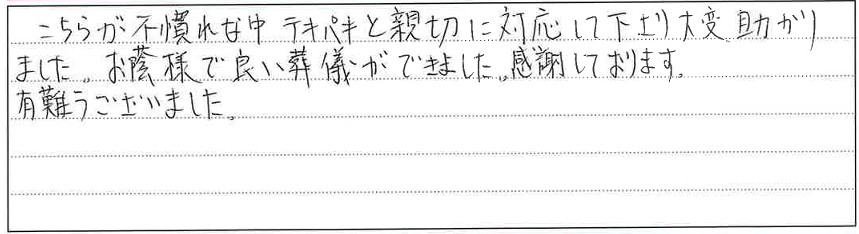 こちらが不慣れな中 テキパキと親切に対応して下さり大変助かり
ました。お蔭様で良い葬儀ができました。感謝しております。
有難うございました。